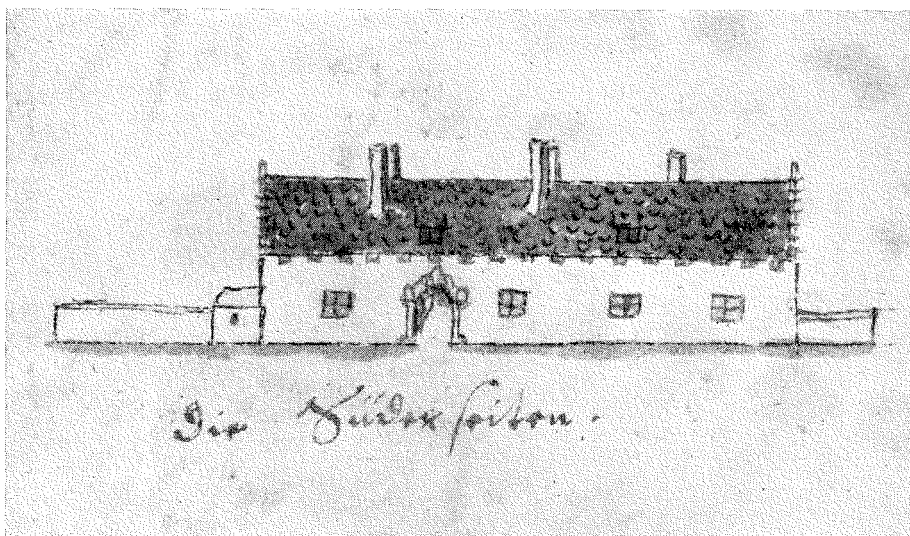 Die Süder seiten.